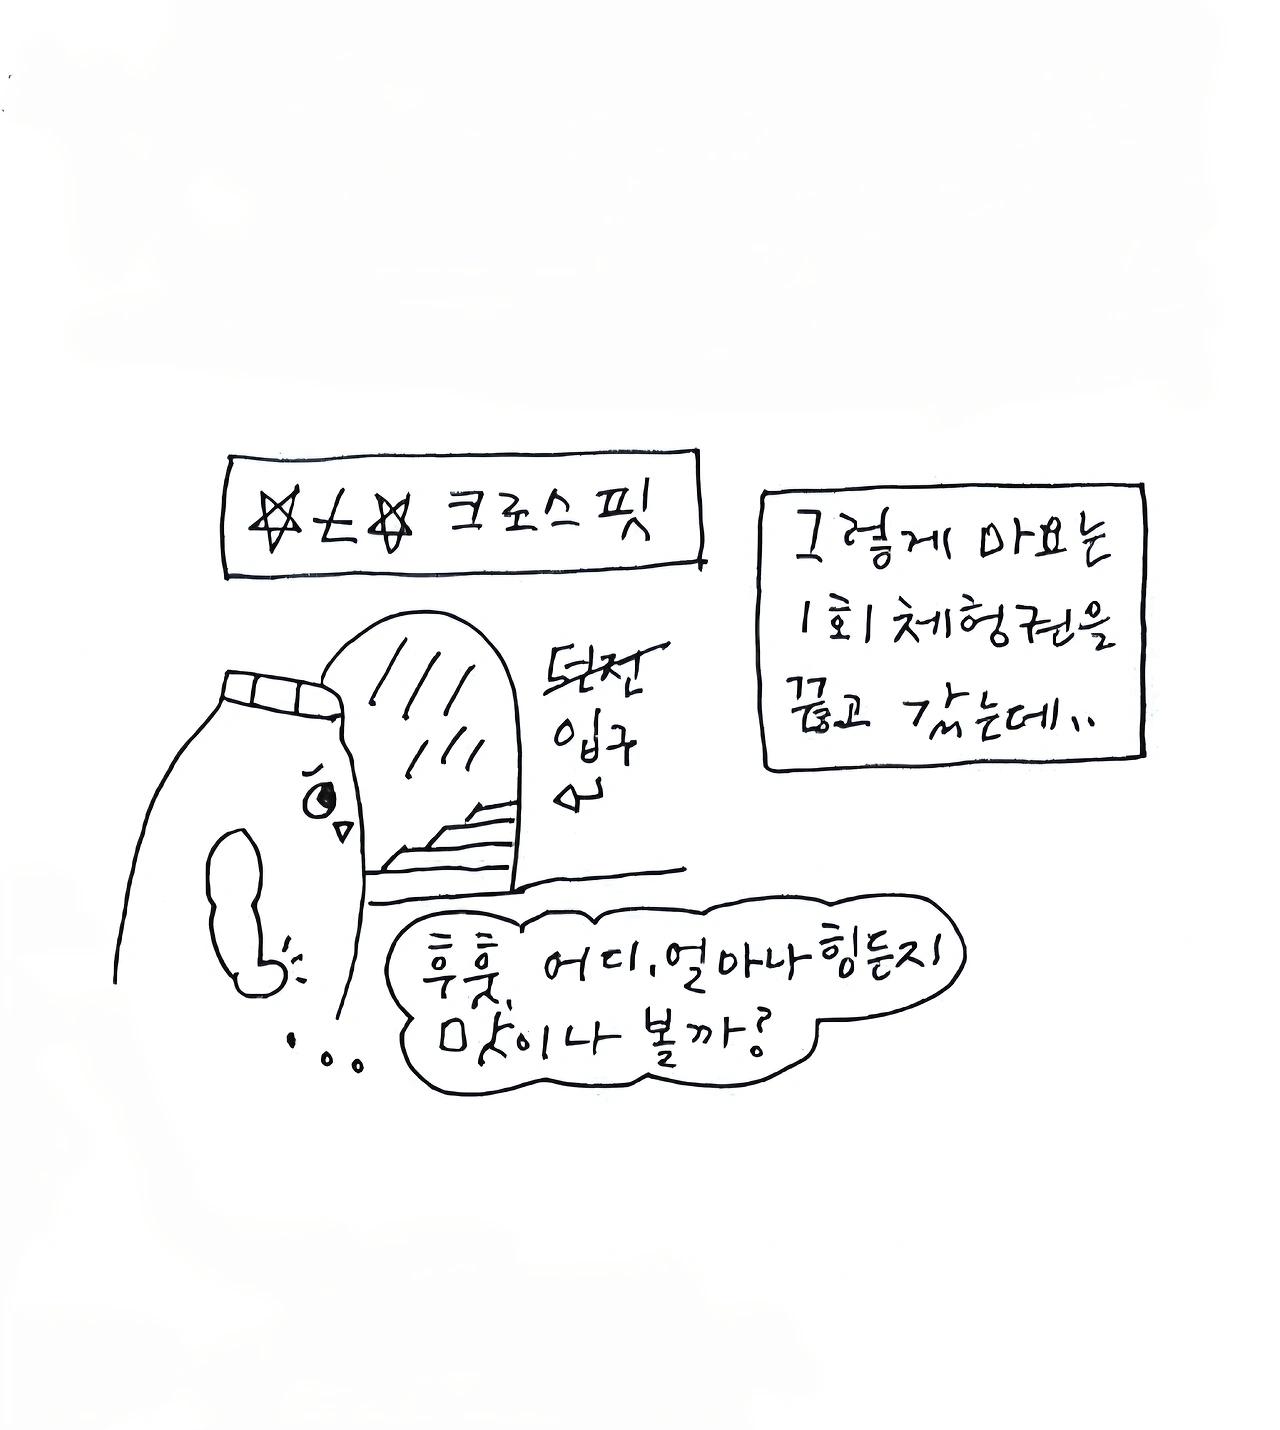 ☆ㅊ☆ 크로스핏
그렇게 마요는
1회 체험권을
끊고 갔는데..
던전
입구
후훗, 어디, 얼마나 힘든지
맛이나 볼까?